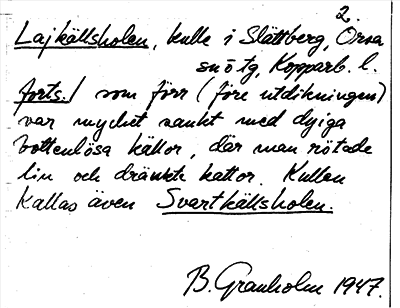 2.
Lajkällsholen, kulle i Slättberg, Orsa
sn ö tg, Kopparb. l.
forts./ som förr (före utdikningen)
var mycket sankt med dyiga
bottenlösa källor, där man rötade
lin och dränkte kattor. Kullen
kallas även Svartkällsholen.
B. Granholm 1947.